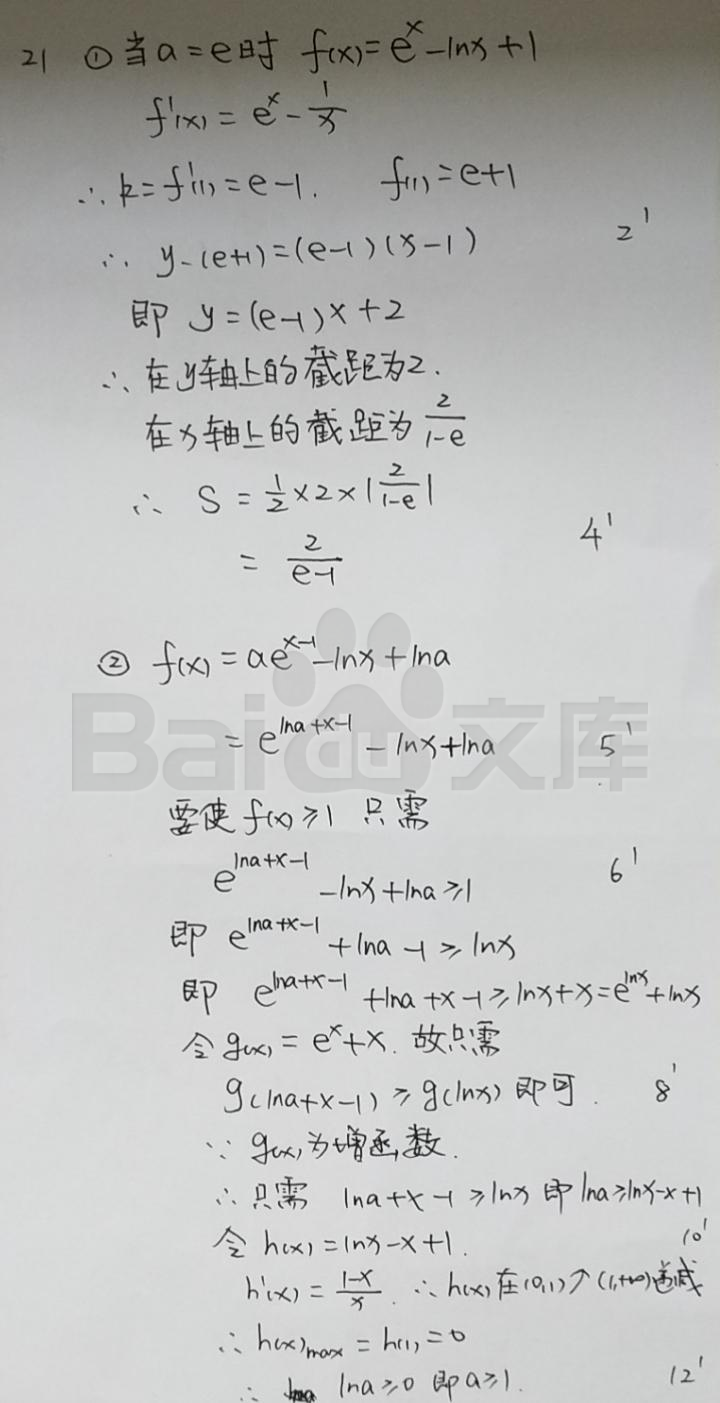 21 ① 当a=e时 f(x)=e^x-lnx+1
f'(x)=e^x-1/x
∴k=f'(1)=e-1. f(1)=e+1
∴ y-(e+1)=(e-1)(x-1) 2'
即 y=(e-1)x+2
∴在y轴上的截距为2.
在x轴上的截距为 2/(1-e)
∴ S=1/2×2×|2/(1-e)|
= 2/(e-1) 4'
② f(x)=ae^(x-1)-lnx+lna
=e^(lna+x-1)-lnx+lna 5'
Bai 文库
要使f(x)≥1 只需
e^(lna+x-1)-lnx+lna≥1 6'
即 e^(lna+x-1)+lna-1≥lnx
即 e^(lna+x-1)+lna+x-1≥lnx+x=e^(lnx)+lnx
令g(x)=e^x+x. 故只需
g(lna+x-1)≥g(lnx) 即可. 8'
∵ g(x)为增函数.
∴只需 lna+x-1≥lnx 即lna≥lnx-x+1
令 h(x)=lnx-x+1. 10'
h'(x)=(1-x)/x. ∴h(x)在(0,1)↗(1,+∞)递减
∴h(x)max=h(1)=0
∴ lna≥0 即a≥1. 12'